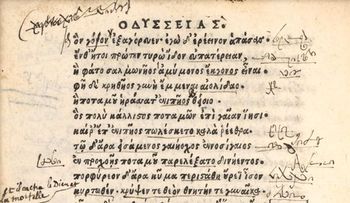 ΟΔΥΣΣΕΙΑΣ
ὃν γόνον ἐξαγόρευεν· ἐγὼ δ' ἐρέεινον ἁπάσας.
ἔνθ' ἤτοι πρώτην τυρὼ ἴδον εὐπατέρειαν,
ἣ φάτο σαλμωνῆος ἀμύμονος ἔκγονος εἶναι,
φῆ δὲ κρηθῆος γυνὴ ἔμμεναι αἰολίδαο·
ἣ ποταμοῦ ἠράσατ' ἐνιπῆος θείοιο
ὃς πολὺ κάλλιστος ποταμῶν ἐπὶ γαῖαν ἵησι·
καί ῥ' ἐπ' ἐνιπῆος πωλέσκετο καλὰ ῥέεθρα.
τῷ δ' ἄρα εἰσάμενος γαιήοχος ἐννοσίγαιος
ἐν προχοῇς ποταμοῦ παρελέξατο δινήεντος·
πορφύρεον δ' ἄρα κῦμα περιστάθη οὔρεϊ ἶσον
κυρτωθέν· κρύψεν δὲ θεὸν θνητήν τε γυναῖκα.
et Cacha le Dieu et
la mortelle